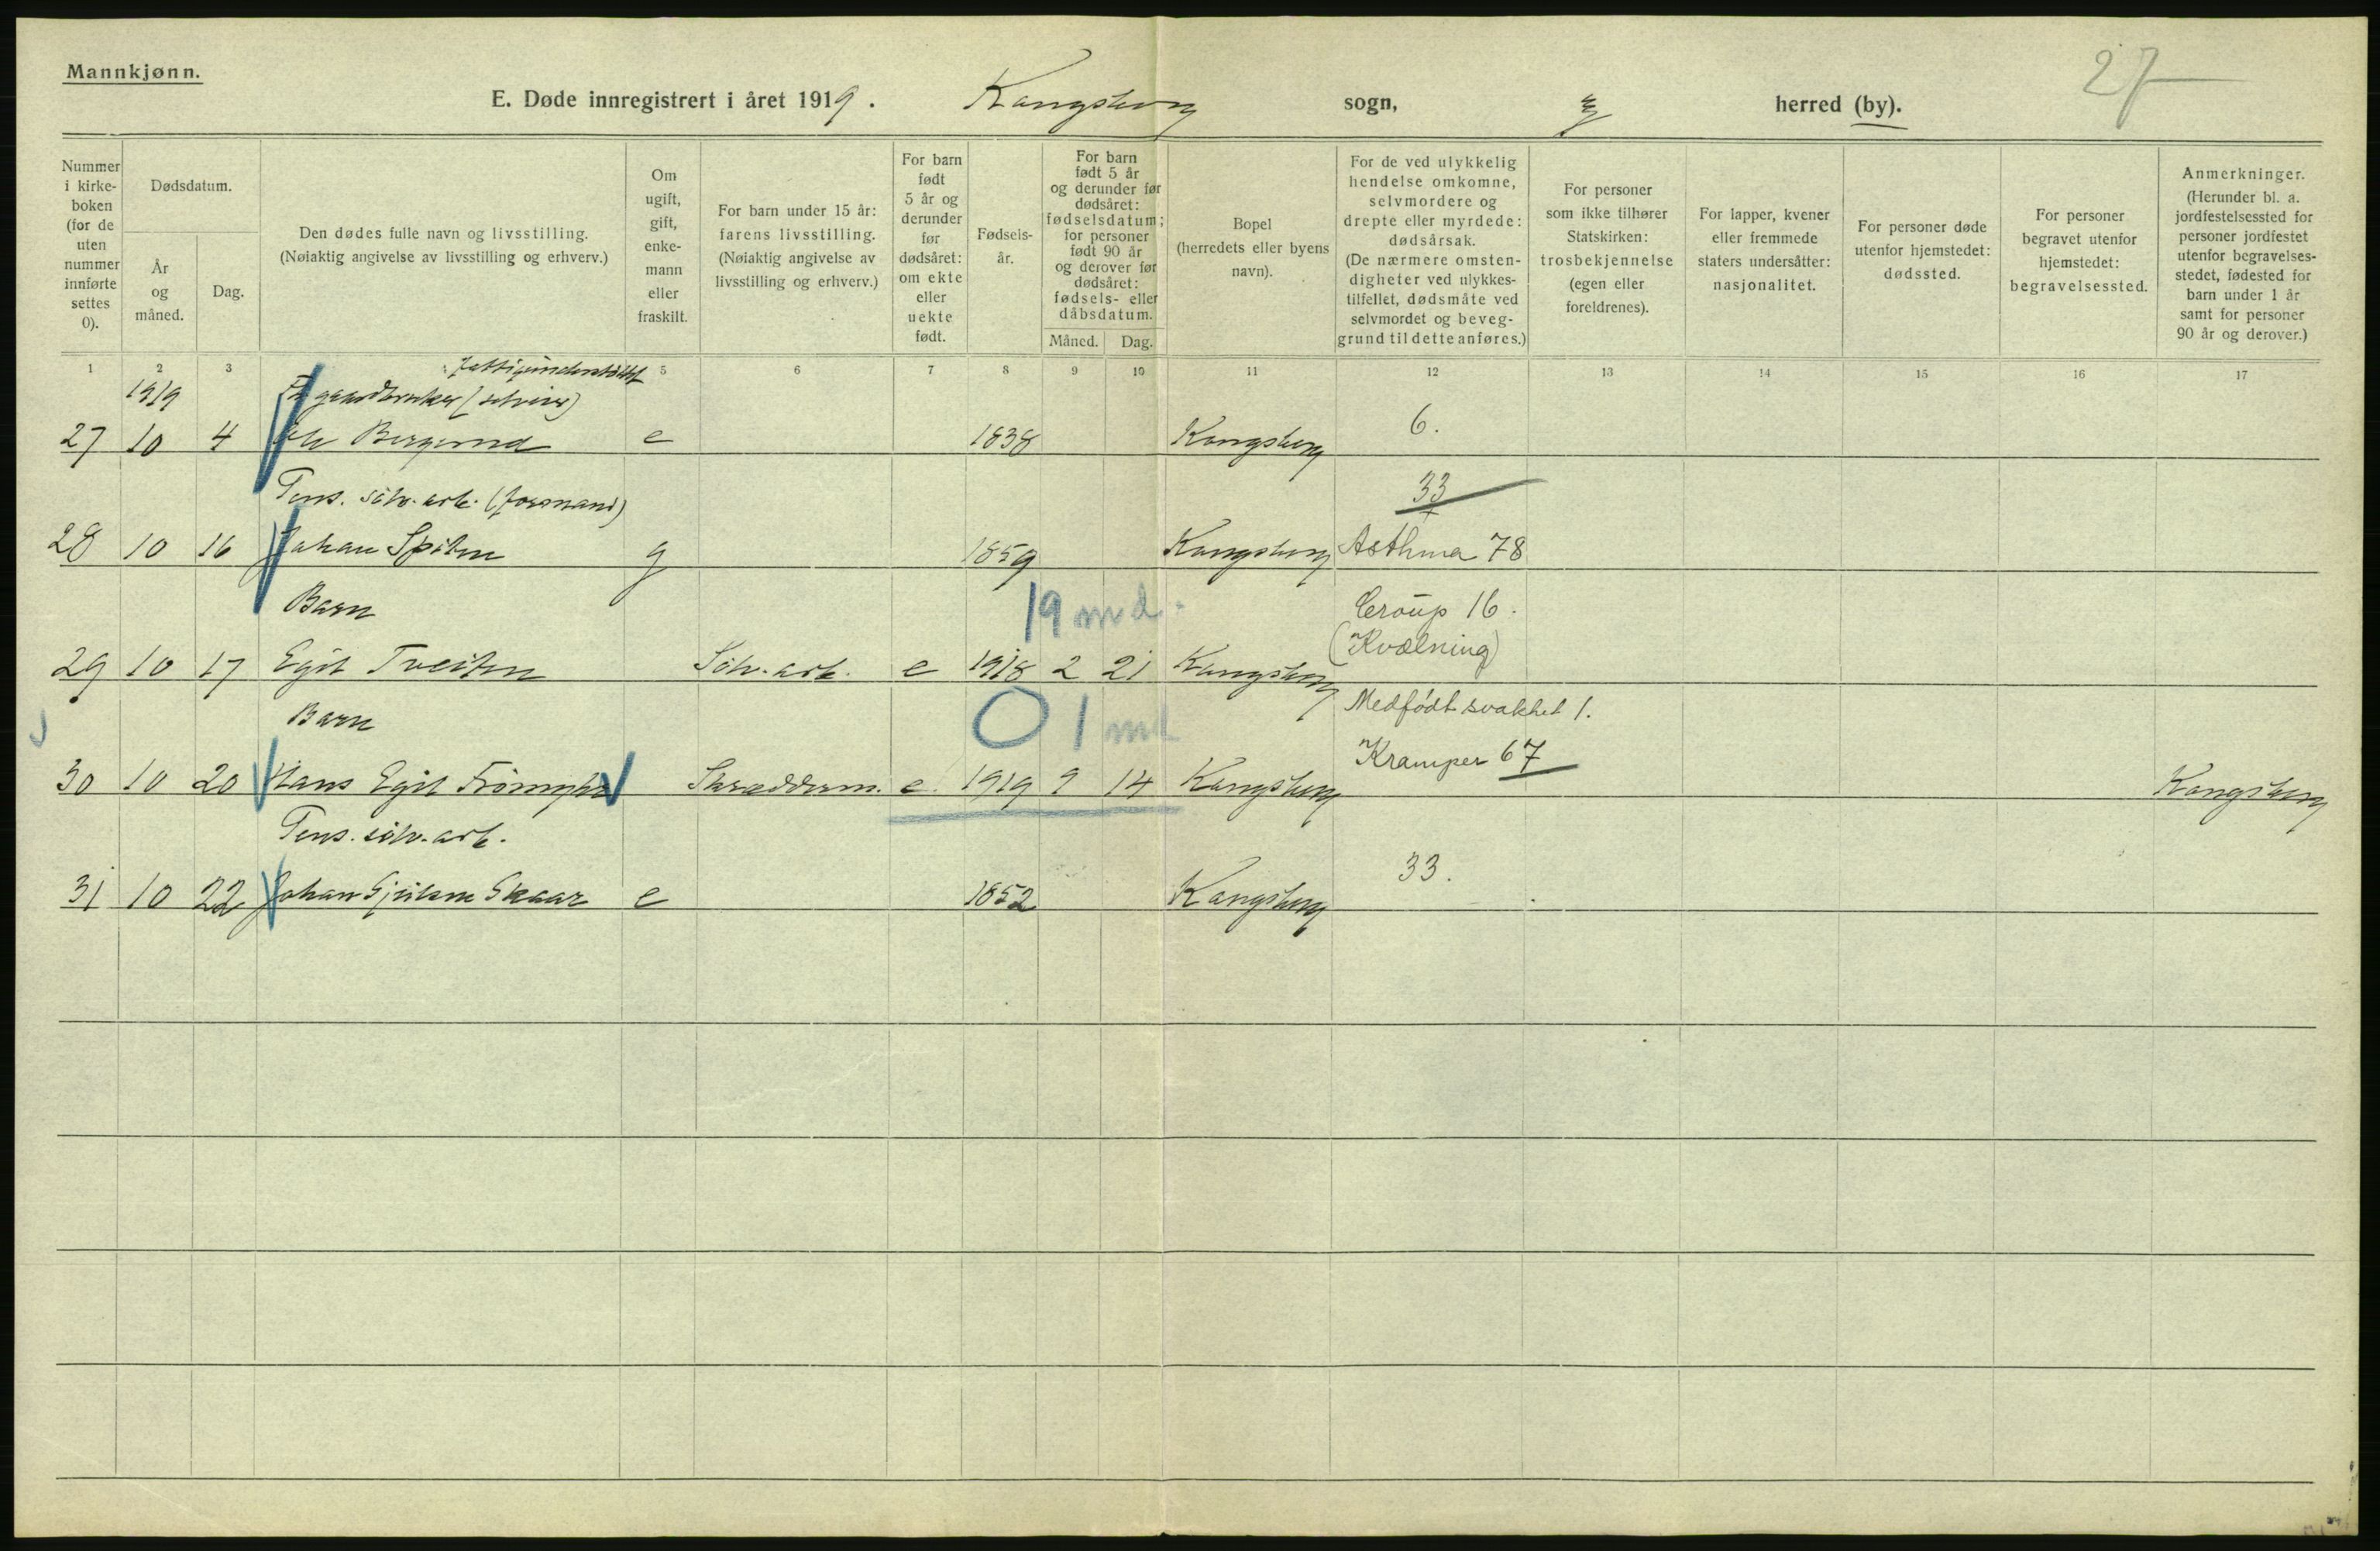 Mannkjønn.
27
E. Døde innregistrert i året 1919. Kongsberg sogn, herred (by).
Nummer i kirkeboken (for de uten nummer innførte settes 0).
Dødsdatum.
År og måned.
Dag.
Den dødes fulle navn og livsstilling.
(Nøiaktig angivelse av livsstilling og erhverv.)
Om ugift, gift, enkemann eller fraskilt.
For barn under 15 år: farens livsstilling.
(Nøiaktig angivelse av livsstilling og erhverv.)
For barn født 5 år og derunder før dødsåret: om ekte eller uekte født.
Fødselsår.
For barn født 5 år og derunder før dødsåret: fødselsdatum; for personer født 90 år og derover før dødsåret: fødsels- eller dåbsdatum.
Måned.
Dag.
Bopel (herredets eller byens navn).
For de ved ulykkelig hendelse omkomne, selvmordere og drepte eller myrdede: dødsårsak.
(De nærmere omstendigheter ved ulykkestilfellet, dødsmåte ved selvmordet og beveggrund til dette anføres.)
For personer som ikke tilhører Statskirken: trosbekjennelse (egen eller foreldrenes).
For lapper, kvener eller fremmede staters undersåtter: nasjonalitet.
For personer døde utenfor hjemstedet: dødssted.
For personer begravet utenfor hjemstedet: begravelsessted.
Anmerkninger.
(Herunder bl. a. jordfestelsessted for personer jordfestet utenfor begravelsesstedet, fødested for barn under 1 år samt for personer 90 år og derover.)
1 2 3 5 6 7 8 9 10 11 12 13 14 15 16 17
fattigunderstöttet
1919 gaardbruker
27 10 4 e 1838 Kongsberg 6.
Pens. sölv. arb. (formand) 33
28 10 16 Johan g 1859 Kongsberg Asthma 78
Barn 19 md. Croup 16.
(Kvælning)
29 10 17 Egil Tveiten Sölv. arb. e 1918 2 21 Kongsberg
Barn 0 1 md Medfødt svakhet 1.
Kramper 67
30 10 20 Hans Egil Skræddern. e. 1919 9 14 Kongsberg Kongsberg
Pens. sölv. arb.
31 10 22 Johan Skaar e 1852 Kongsberg 33.